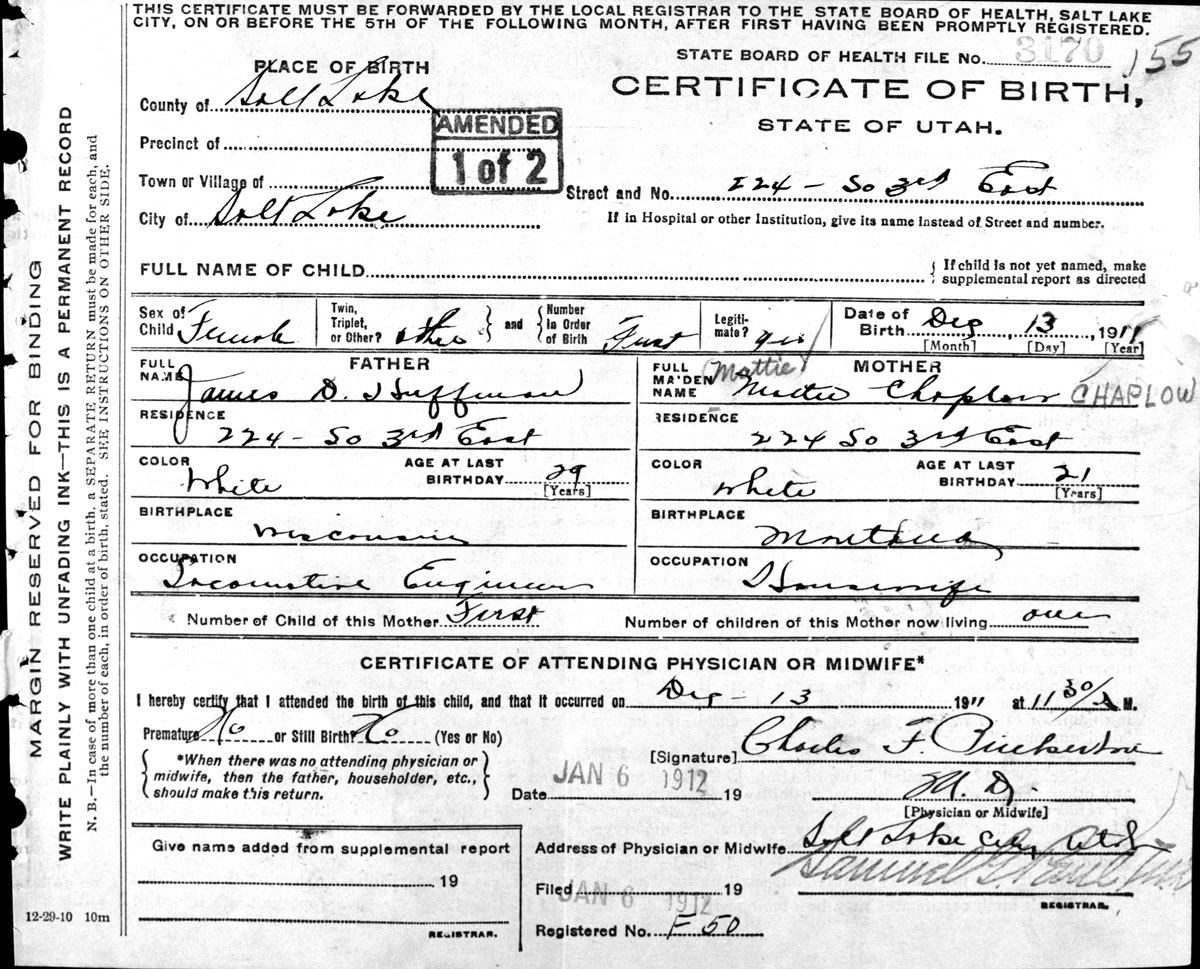 THIS CERTIFICATE MUST BE FORWARDED BY THE LOCAL REGISTRAR TO THE STATE BOARD OF HEALTH, SALT LAKE
CITY, ON OR BEFORE THE 5TH OF THE FOLLOWING MONTH, AFTER FIRST HAVING BEEN PROMPTLY REGISTERED.
STATE BOARD OF HEALTH FILE No. 3170 155
CERTIFICATE OF BIRTH,
STATE OF UTAH.
PLACE OF BIRTH
County of Salt Lake
AMENDED
1 of 2
Precinct of
Town or Village of
Street and No. 224 - So 3rd East
City of Salt Lake
If in Hospital or other Institution, give its name instead of Street and number.
FULL NAME OF CHILD
{ If child is not yet named, make
supplemental report as directed
Sex of Child Female
Twin, Triplet, or Other? other } and { Number In Order of Birth First
Legitimate? yes
Date of Birth Dec 13 1911
[Month] [Day] [Year]
FATHER
FULL NAME James D. Huffman
RESIDENCE
224 - So 3rd East
COLOR White
AGE AT LAST BIRTHDAY 29
[Years]
BIRTHPLACE
Wisconsin
OCCUPATION
Locomotive Engineer
MOTHER
FULL MAIDEN NAME Mattie Mattie Chaplow CHAPLOW
RESIDENCE
224 So 3rd East
COLOR White
AGE AT LAST BIRTHDAY 21
[Years]
BIRTHPLACE
Montana
OCCUPATION
Housewife
Number of Child of this Mother First
Number of children of this Mother now living one
CERTIFICATE OF ATTENDING PHYSICIAN OR MIDWIFE*
I hereby certify that I attended the birth of this child, and that it occurred on Dec - 13 1911 at 11 30/ M.
Premature No or Still Birth? No (Yes or No)
{ *When there was no attending physician or
midwife, then the father, householder, etc.,
should make this return. }
[Signature] Charles F. Pinkerton
Date JAN 6 1912 19
M. D.
[Physician or Midwife]
Address of Physician or Midwife Salt Lake City Utah
Give name added from supplemental report
19
REGISTRAR.
Filed JAN 6 1912 19
Samuel G. Paul
REGISTRAR.
Registered No. F 50
12-29-10 10m
MARGIN RESERVED FOR BINDING
WRITE PLAINLY WITH UNFADING INK—THIS IS A PERMANENT RECORD
N. B.—In case of more than one child at a birth, a SEPARATE RETURN must be made for each, and
the number of each, in order of birth, stated. SEE INSTRUCTIONS ON OTHER SIDE.